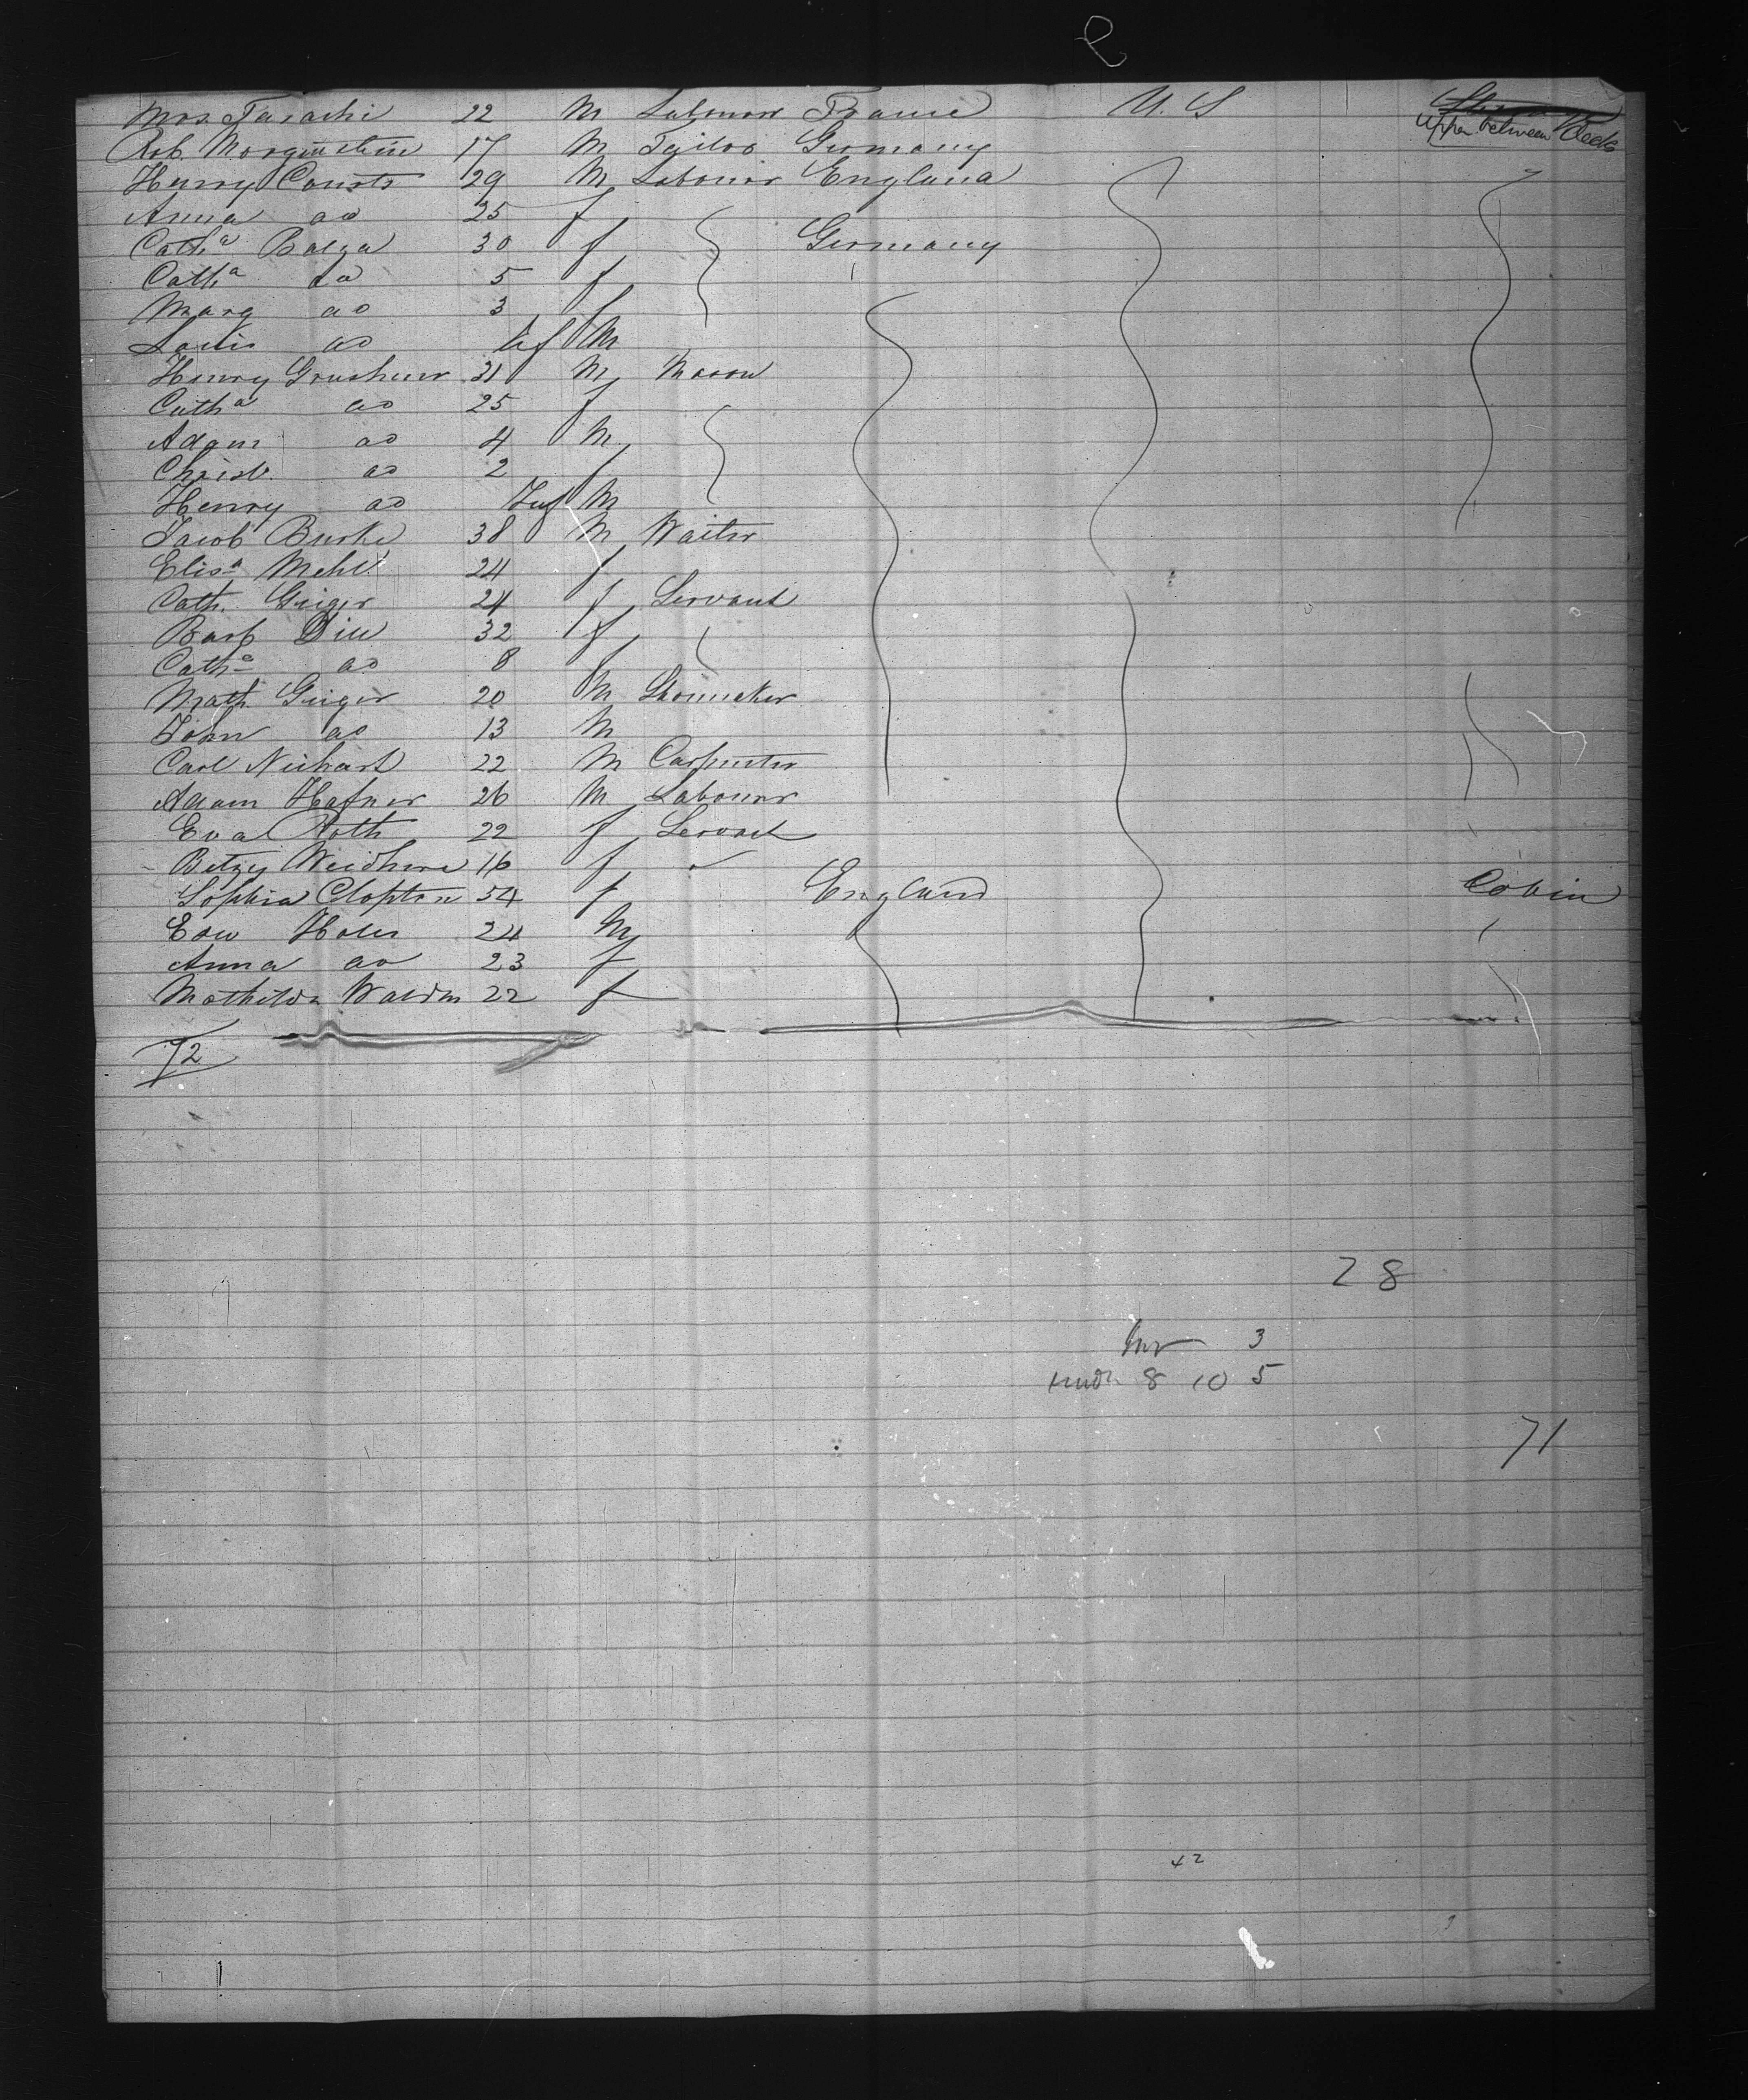 Mos. Tarachi 22 M Labourer France U. S
Upper between Decks
Rob. Morgenstein 17 M Tailor Germany
Henry Counts 29 M Labourer England
Anna do 25 f
Cath.a Balza 30 f Germany
Cath.a do 5 f
Marg do 3 f
Louis do Inf M
Henry Grushuer 31 M Mason
Cath.a do 25 f
Adam do 4 M
Christ. do 2 f
Henry do Inf M
Jacob Burke 38 M Waiter
Elis.a Mehl 24 f
Cath. Geiger 24 f Servant
Barb Dill 32 f
Cath.a do 8 f
Math. Geiger 20 M Shoemaker
John do 13 M
Carl Nichart 22 M Carpenter
Adam Hafner 26 M Labourer
Eva Roth 22 f Servant
Betzy 16 f
Sophia Clopton 54 f England Cabin
Edw Holes 24 M
Anna do 23 f
Mathilda 22 f
72
28
3
und. 8 10 5
71
42